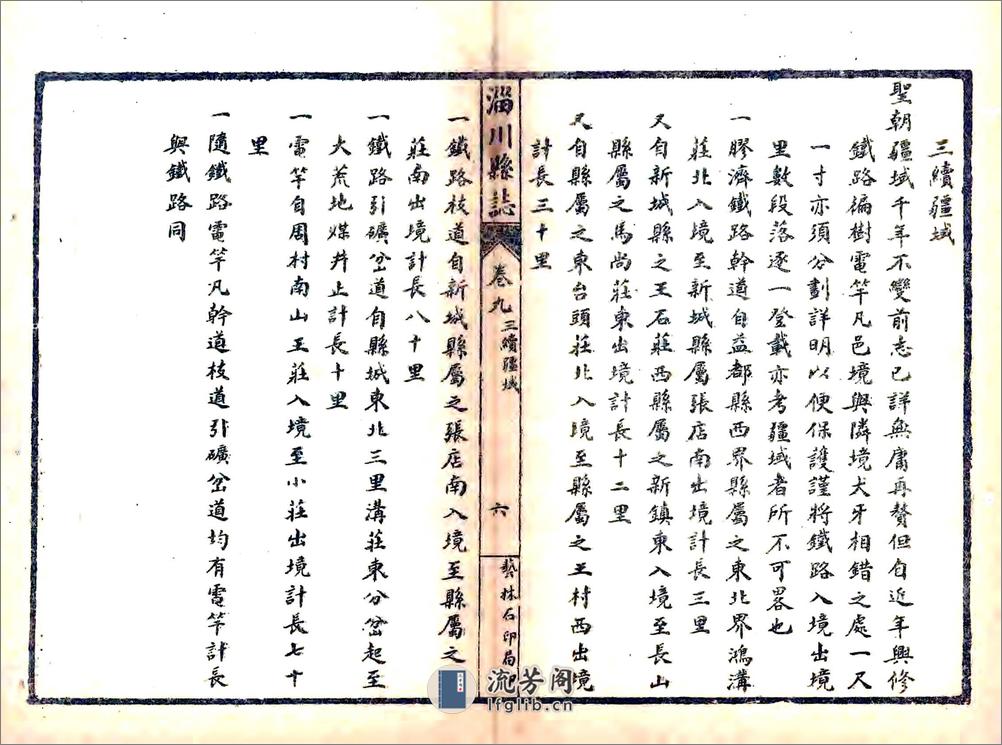 三續疆域
聖朝疆域千年不變前志已詳無庸再贅但自近年興修
鐵路徧樹電竿凡邑境與隣境犬牙相錯之處一尺
一寸亦須分劃詳明以便保護謹將鐵路入境出境
里數段落逐一登載亦考疆域者所不可畧也
一膠濟鐵路幹道自益都縣西界縣屬之東北界鴻溝
莊北入境至新城縣屬張店南出境計長三里
又自新城縣之王石莊西縣屬之新鎮東入境至長山
縣屬之馬尚莊東出境計長十二里
又自縣屬之東台頭莊北入境至縣屬之王村西出境
計長三十里
淄川縣誌
卷九
三續疆域
六
藝林石印局印
一鐵路枝道自新城縣屬之張店南入境至縣屬之
莊南出境計長八十里
一鐵路引礦岔道自縣城東北三里溝莊東分岔起至
大荒地煤井止計長十里
一電竿自周村南山王莊入境至小莊出境計長七十
里
一隨鐵路電竿凡幹道枝道引礦岔道均有電竿計長
與鐵路同
流芳阁
lfglib.cn